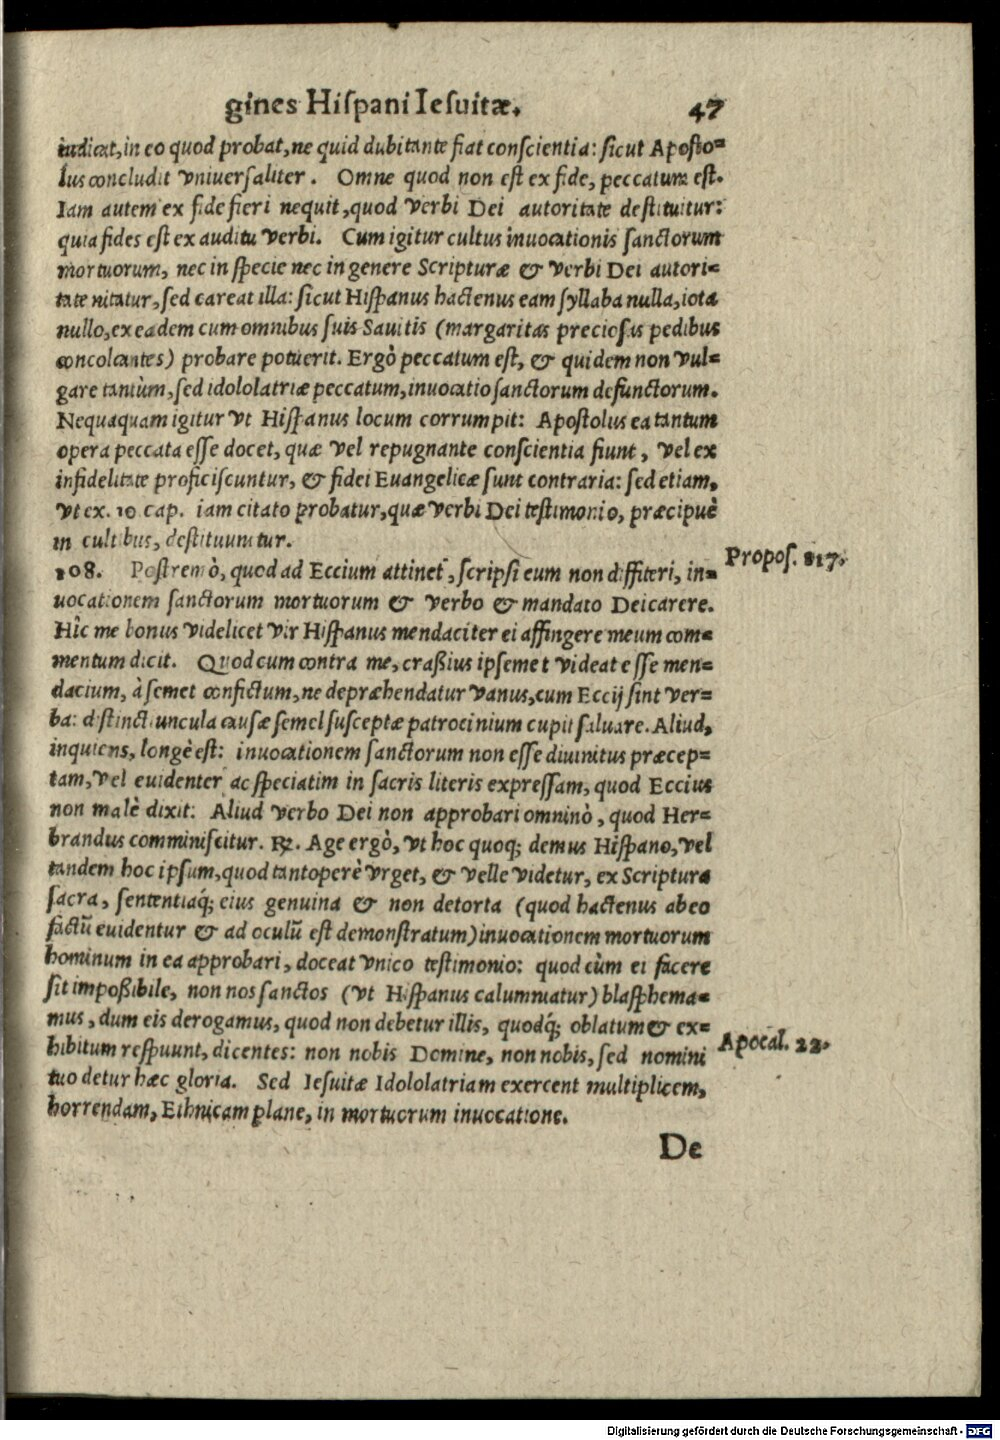 gines Hiſpani Ieſuitæ. 47
iudicat, in eo quod probat, ne quid dubitante fiat conſcientia: ſicut Apoſto=
lus concludit vniuerſaliter. Omne quod non eſt ex fide, peccatum eſt.
Iam autem ex fide fieri nequit, quod verbi Dei autoritate deſtituitur:
quia fides eſt ex auditu verbi. Cum igitur cultus inuocationis ſanctorum
mortuorum, nec in ſpecie nec in genere Scripturæ & verbi Dei autori=
tate nitatur, ſed careat illa: ſicut Hiſpanus hactenus eam ſyllaba nulla, iota
nullo, ex eadem cum omnibus ſuis Sauitis (margaritas precioſas pedibus
concolcantes) probare potuerit. Ergò peccatum eſt, & quidem non vul=
gare tantùm, ſed idololatriæ peccatum, inuocatio ſanctorum defunctorum.
Nequaquam igitur vt Hiſpanus locum corrumpit: Apoſtolus ea tantum
opera peccata eſſe docet, quæ vel repugnante conſcientia fiunt, vel ex
infidelitate proficiſcuntur, & fidei Euangelicæ ſunt contraria: ſed etiam,
vt ex. 10 cap. iam citato probatur, quæ verbi Dei teſtimonio, præcipuè
in cultibus, deſtituuntur.
Propoſ. 817.
108. Poſtremò, quod ad Eccium attinet, ſcripſi eum non diffiteri, in=
uocationem ſanctorum mortuorum & verbo & mandato Dei carere.
Hîc me bonus videlicet vir Hiſpanus mendaciter ei affingere meum com=
mentum dicit. Quod cum contra me, craßius ipſemet videat eſſe men=
dacium, à ſemet confictum, ne depræhendatur vanus, cum Eccij ſint ver=
ba: diſtinctiuncula cauſæ ſemel ſuſceptæ patrocinium cupit ſaluare. Aliud,
inquiens, longè eſt: inuocationem ſanctorum non eſſe diuinitus præcep=
tam, vel euidenter ac ſpeciatim in ſacris literis expreſſam, quod Eccius
non malè dixit: Aliud verbo Dei non approbari omninò, quod Her=
brandus comminiſcitur. ℞. Age ergò, vt hoc quoq; demus Hiſpano, vel
tandem hoc ipſum, quod tantoperè vrget, & velle videtur, ex Scriptura
ſacra, ſententiaq́; eius genuina & non detorta (quod hactenus ab eo
factū euidentur & ad oculū eſt demonſtratum) inuocationem mortuorum
hominum in ea approbari, doceat vnico teſtimonio: quod cùm ei facere
ſit impoßibile, non nos ſanctos (vt Hiſpanus calumniatur) blaſphema=
mus, dum eis derogamus, quod non debetur illis, quodq́; oblatum & ex=
Apocal. 22.
hibitum reſpuunt, dicentes: non nobis Domine, non nobis, ſed nomini
tuo detur hæc gloria. Sed Ieſuitæ Idololatriam exercent multiplicem,
horrendam, Ethnicam plane, in mortuorum inuocatione.
De
Digitalisierung gefördert durch die Deutsche Forschungsgemeinschaft - DFG